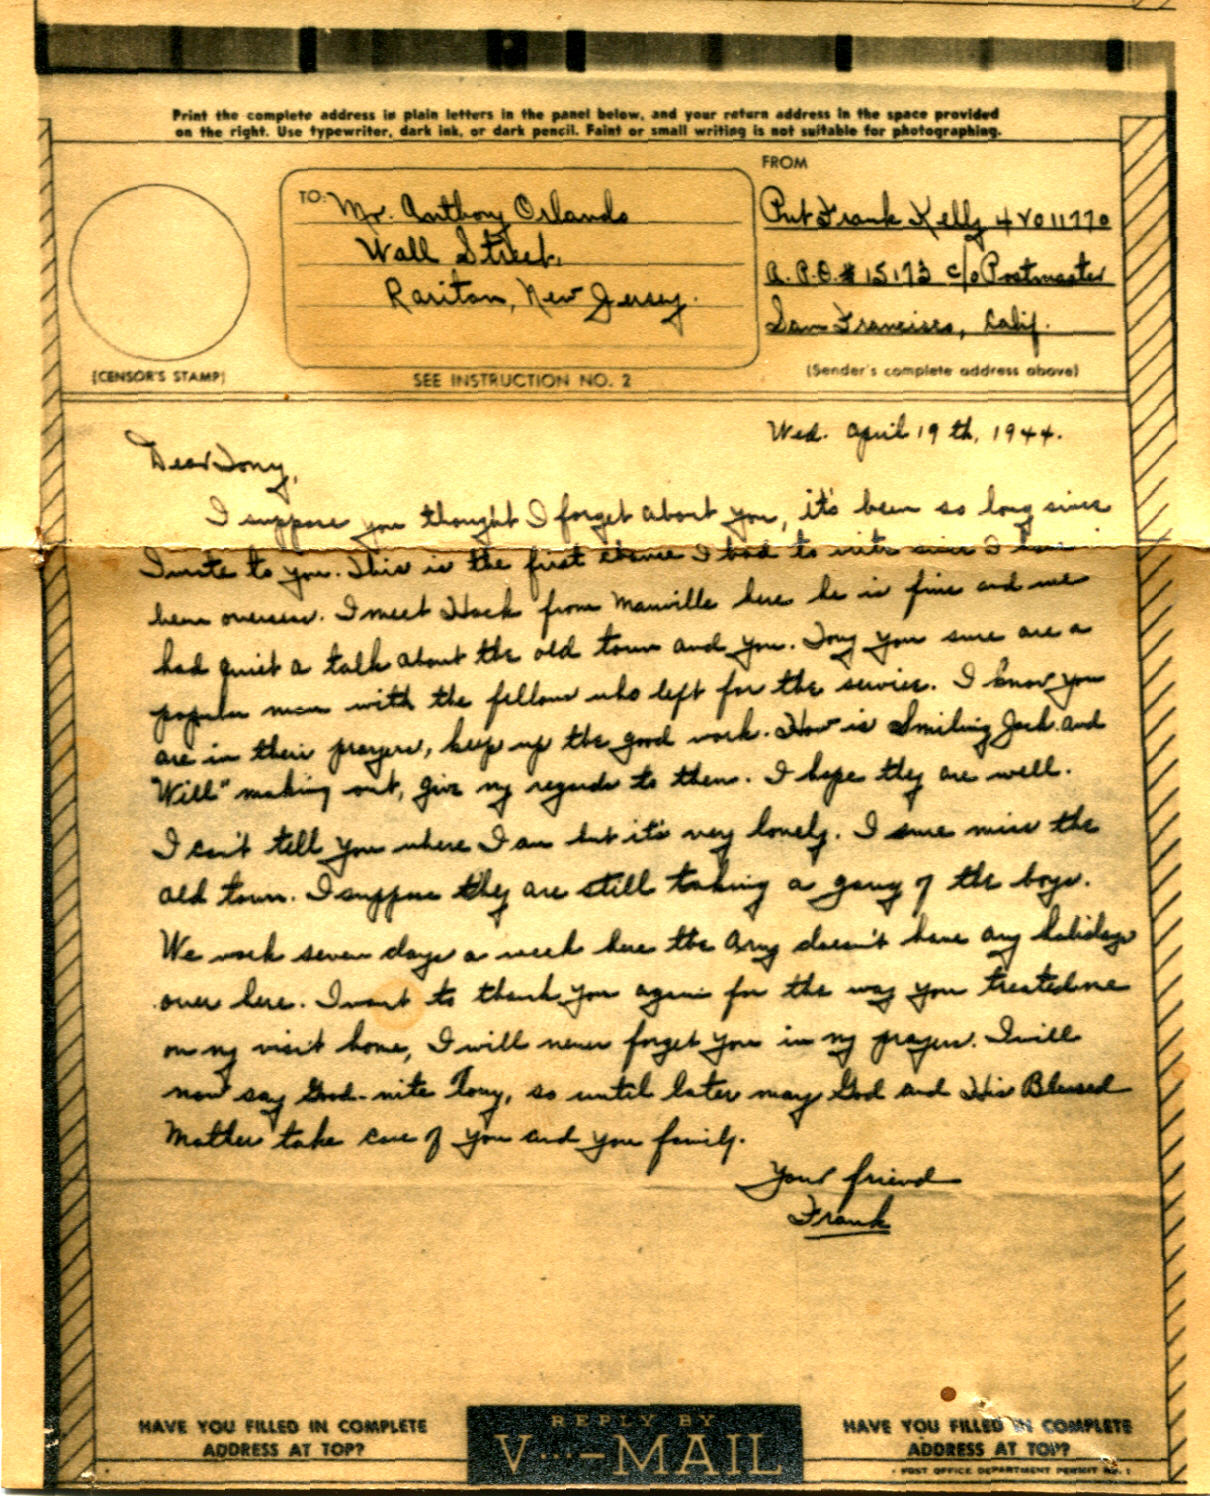 Print the complete address in plain letters in the panel below, and your return address in the space provided
on the right. Use typewriter, dark ink, or dark pencil. Faint or small writing is not suitable for photographing.
FROM
TO:
Mr. Anthony Orlando
Wall Street,
Raritan, New Jersey.
Pvt Frank Kelly 42011770
A.P.O. # 15173 c/o Postmaster
San Francisco, Calif.
(CENSOR'S STAMP)
SEE INSTRUCTION NO. 2
(Sender's complete address above)
Wed. April 19th, 1944.
Dear Tony,
I suppose you thought I forget about you, it's been so long since
I wrote to you. This is the first chance I had to write since I have
been overseas. I meet Hack from Manville here he is fine and we
had quiet a talk about the old town and you. Tony you sure are a
popular man with the fellows who left for the service. I know you
are in their prayers, keep up the good work. How is Smiling Jack and
"Will" making out, give my regards to them. I hope they are well.
I can't tell you where I am but it's very lonely. I sure miss the
old town. I suppose they are still taking a gang of the boys.
We work seven days a week here the Army doesn't have any holidays
over here. I want to thank you again for the way you treated me
on my visit home, I will never forget you in my prayers. I will
now say Good-nite Tony, so until later may God and His Blessed
Mother take care of you and you family.
Your friend
Frank
HAVE YOU FILLED IN COMPLETE
ADDRESS AT TOP?
REPLY BY
V···—MAIL
HAVE YOU FILLED IN COMPLETE
ADDRESS AT TOP?
POST OFFICE DEPARTMENT PERMIT NO. 1